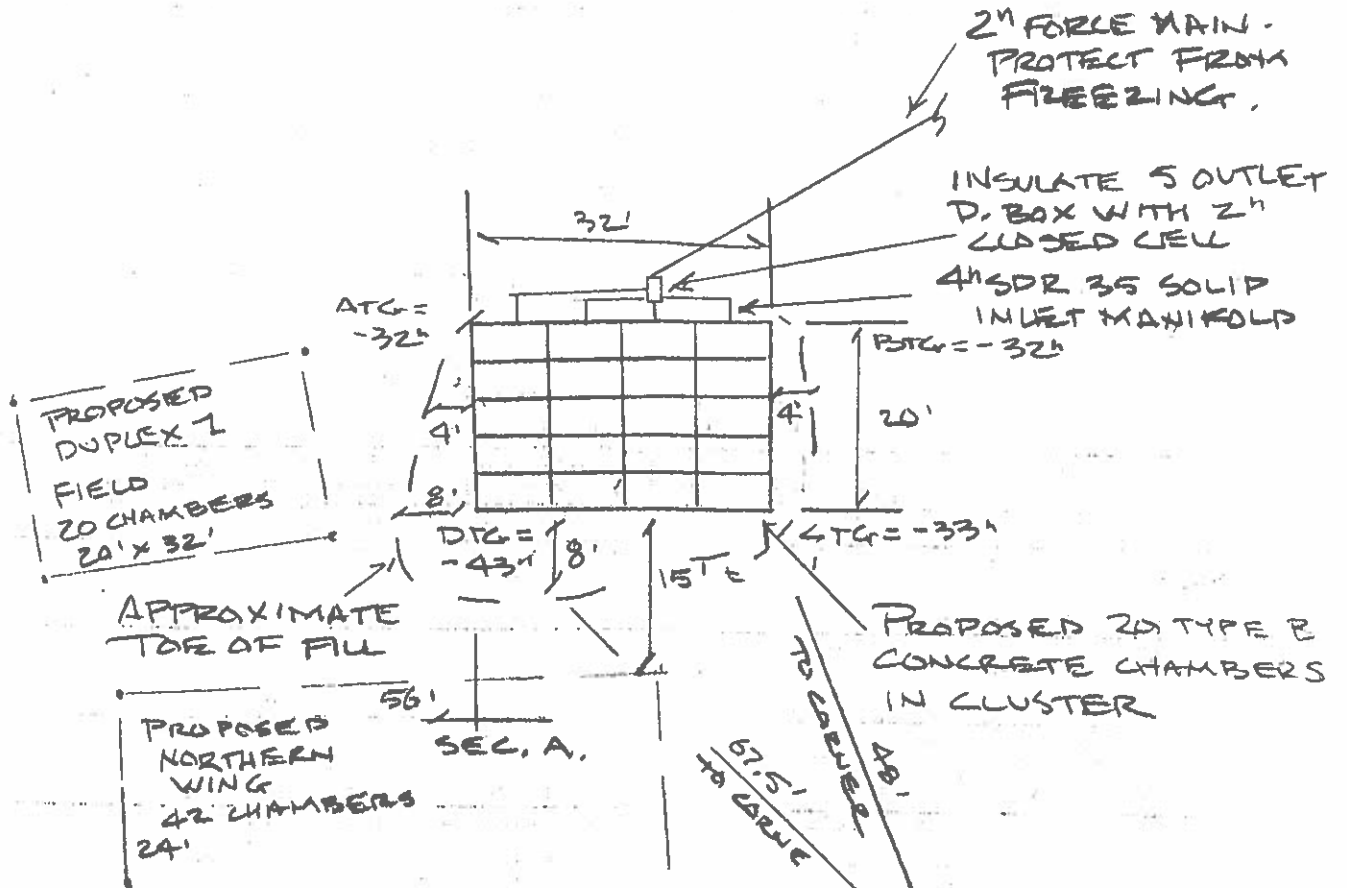 2" FORCE MAIN.
PROTECT FROM
FREEZING.
INSULATE 5 OUTLET
D. BOX WITH 2"
CLOSED CELL
4" SDR 35 SOLID
INLET MANIFOLD
32'
ATG =
-32"
BTG = -32"
4'
4'
20'
8'
DTG =
-43"
8'
15'
CTG = -33"
PROPOSED
DUPLEX 1
FIELD
20 CHAMBERS
20' X 32'
APPROXIMATE
TOE OF FILL
PROPOSED 20 TYPE B
CONCRETE CHAMBERS
IN CLUSTER
56'
SEC. A.
PROPOSED
NORTHERN
WING
42 CHAMBERS
24'
67.5'
TO CORNE
48'
TO CORNER